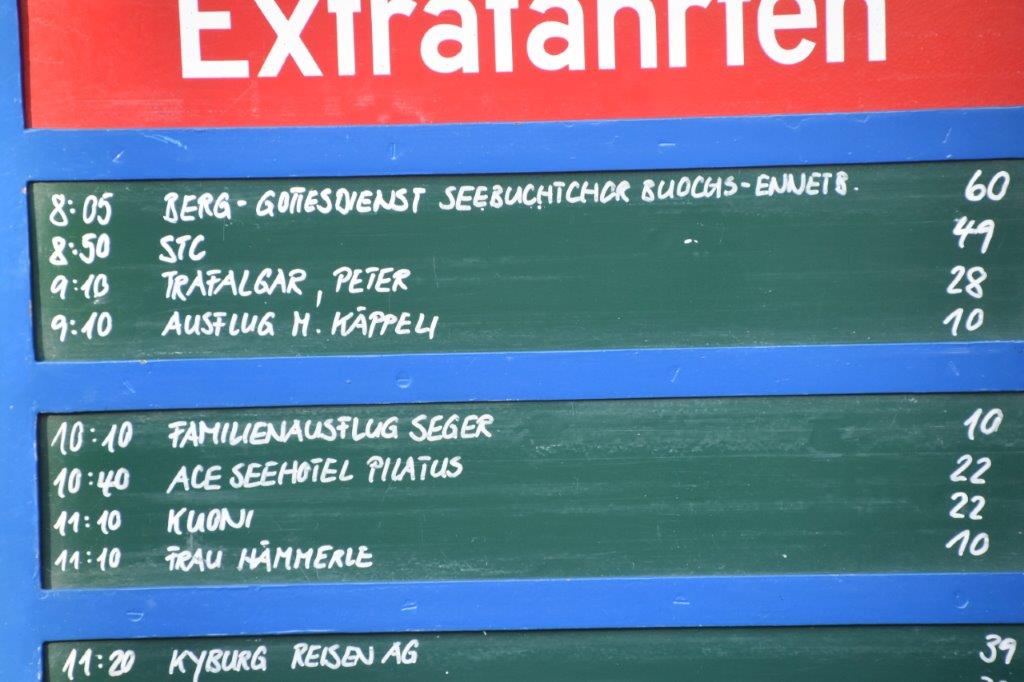 Extrafahrten
8:05 BERG-GOTTESDIENST SEEBUCHTCHOR BUOCHS-ENNETB. 60
8:50 STC 49
9:10 TRAFALGAR, PETER 28
9:10 AUSFLUG M. KÄPPELI 10
10:10 FAMILIENAUSFLUG SEGER 10
10:40 ACE SEEHOTEL PILATUS 22
11:10 KUONI 22
11:10 FRAU HÄMMERLE 10
11:20 KYBURG REISEN AG 39